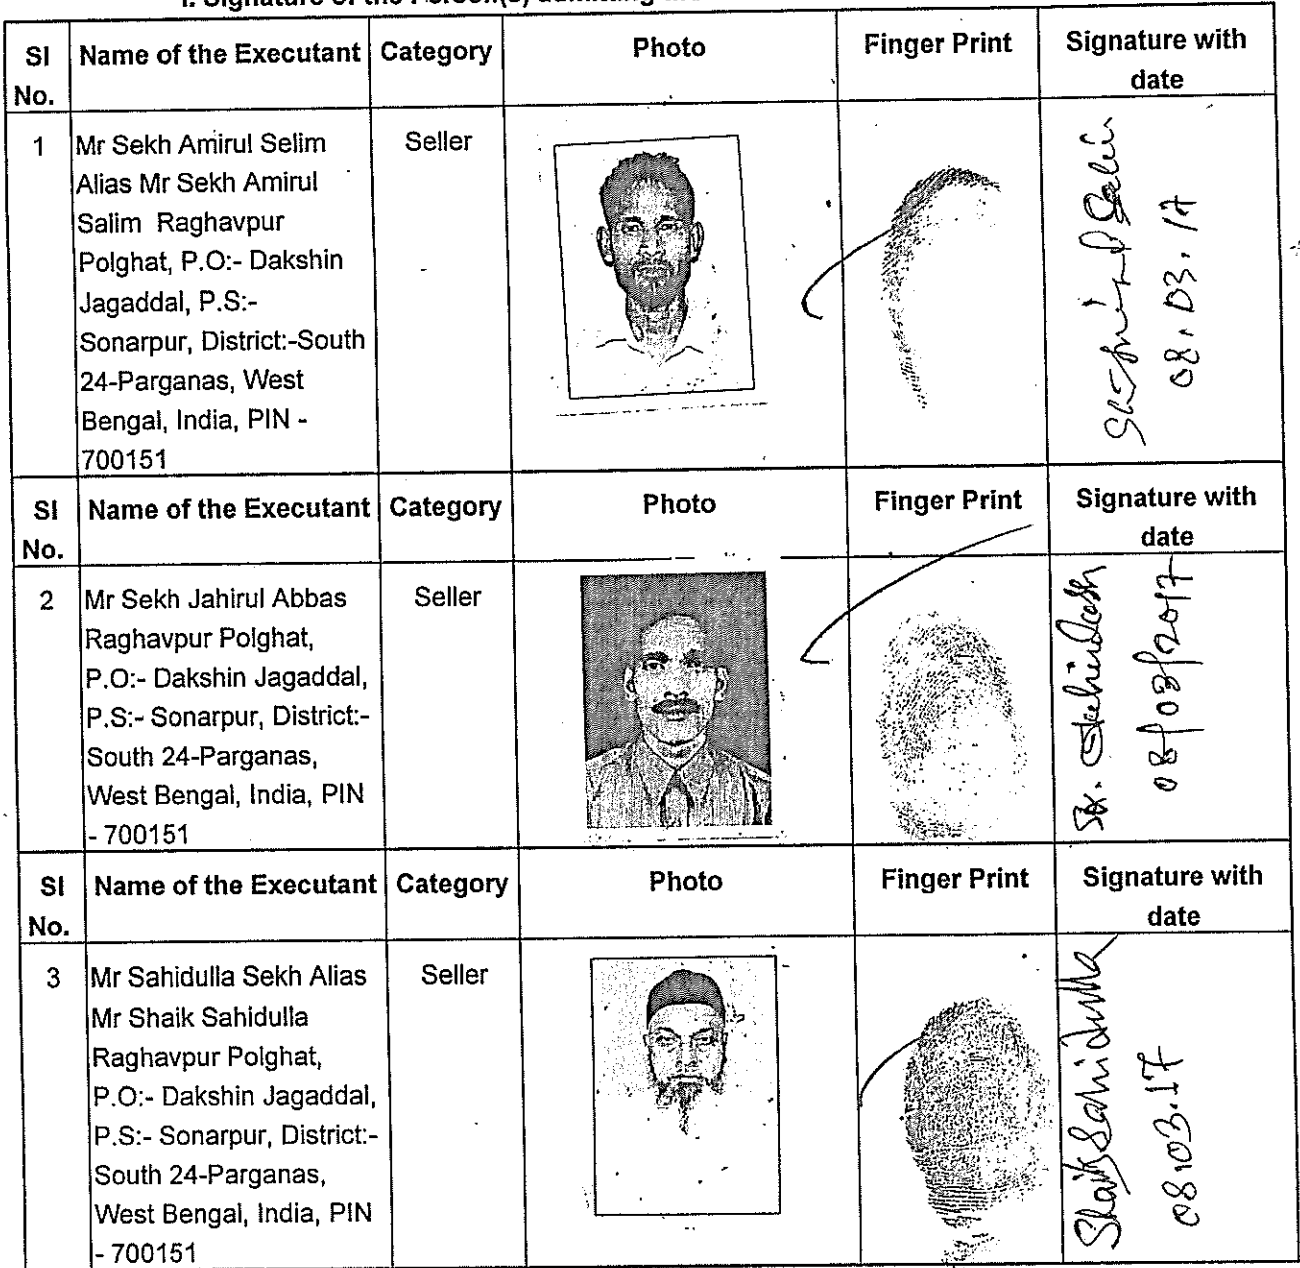 I. Signature of the Person(s) admitting the
SI No. Name of the Executant Category Photo Finger Print Signature with date
1 Mr Sekh Amirul Selim Seller
Alias Mr Sekh Amirul
Salim Raghavpur
Polghat, P.O:- Dakshin
Jagaddal, P.S:-
Sonarpur, District:-South
24-Parganas, West
Bengal, India, PIN -
700151
08.03.17
SI No. Name of the Executant Category Photo Finger Print Signature with date
2 Mr Sekh Jahirul Abbas Seller
Raghavpur Polghat,
P.O:- Dakshin Jagaddal,
P.S:- Sonarpur, District:-
South 24-Parganas,
West Bengal, India, PIN
- 700151
08/03/2017
SI No. Name of the Executant Category Photo Finger Print Signature with date
3 Mr Sahidulla Sekh Alias Seller
Mr Shaik Sahidulla
Raghavpur Polghat,
P.O:- Dakshin Jagaddal,
P.S:- Sonarpur, District:-
South 24-Parganas,
West Bengal, India, PIN
- 700151
Shaik Sahidulla
08.03.17